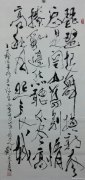 琵琶起舞換新聲
總是關山舊別情
撩亂邊愁聽不盡高
高秋月照長城